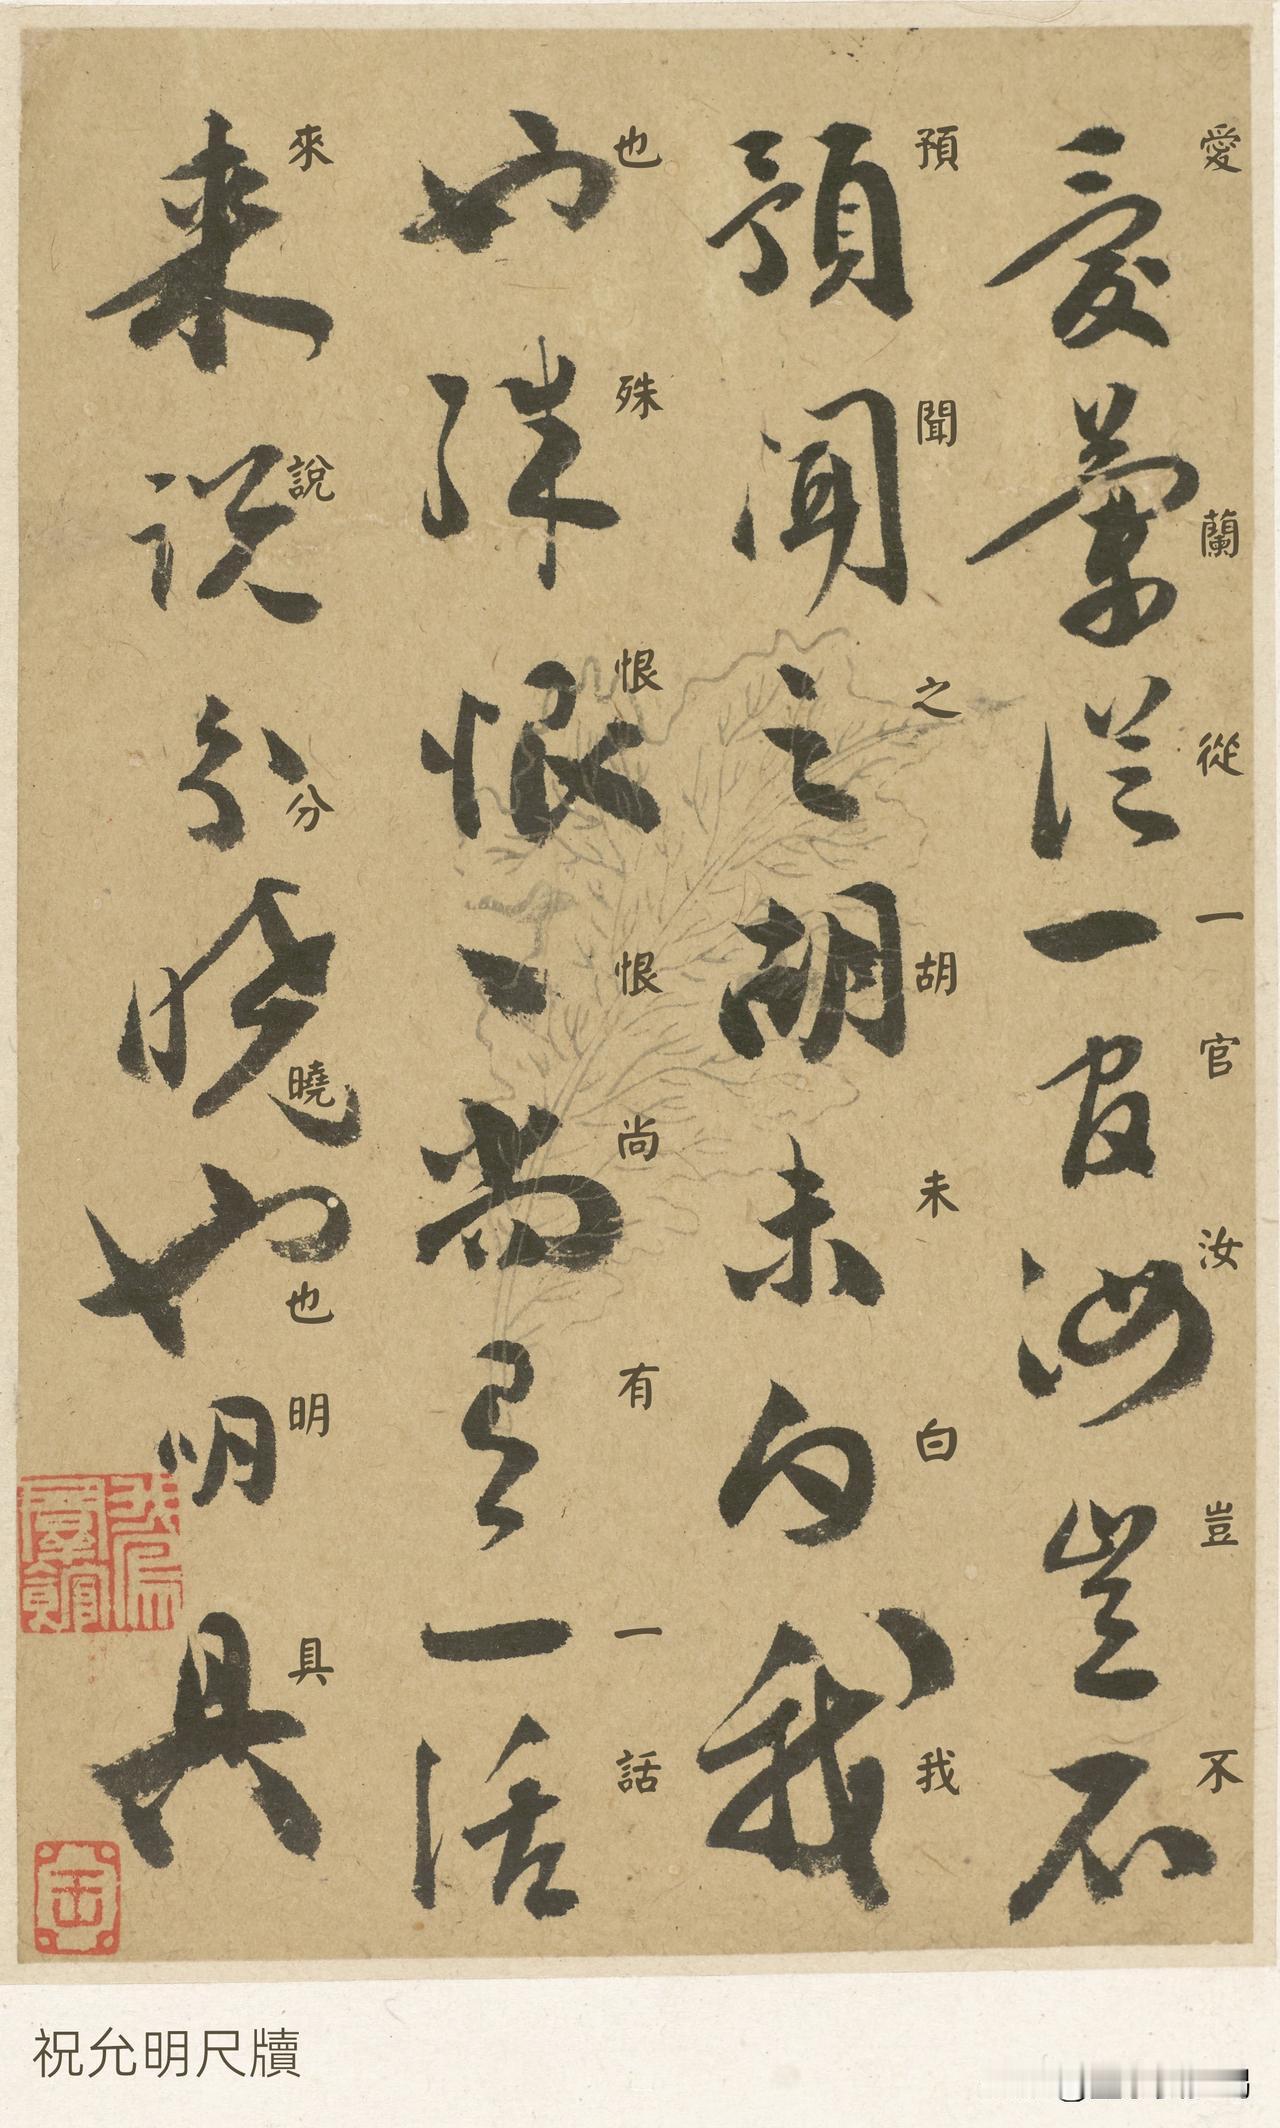 愛蘭從一官汝豈不
預聞之胡未白我
也殊恨恨尚有一話
來說分曉也明具
祝允明尺牘